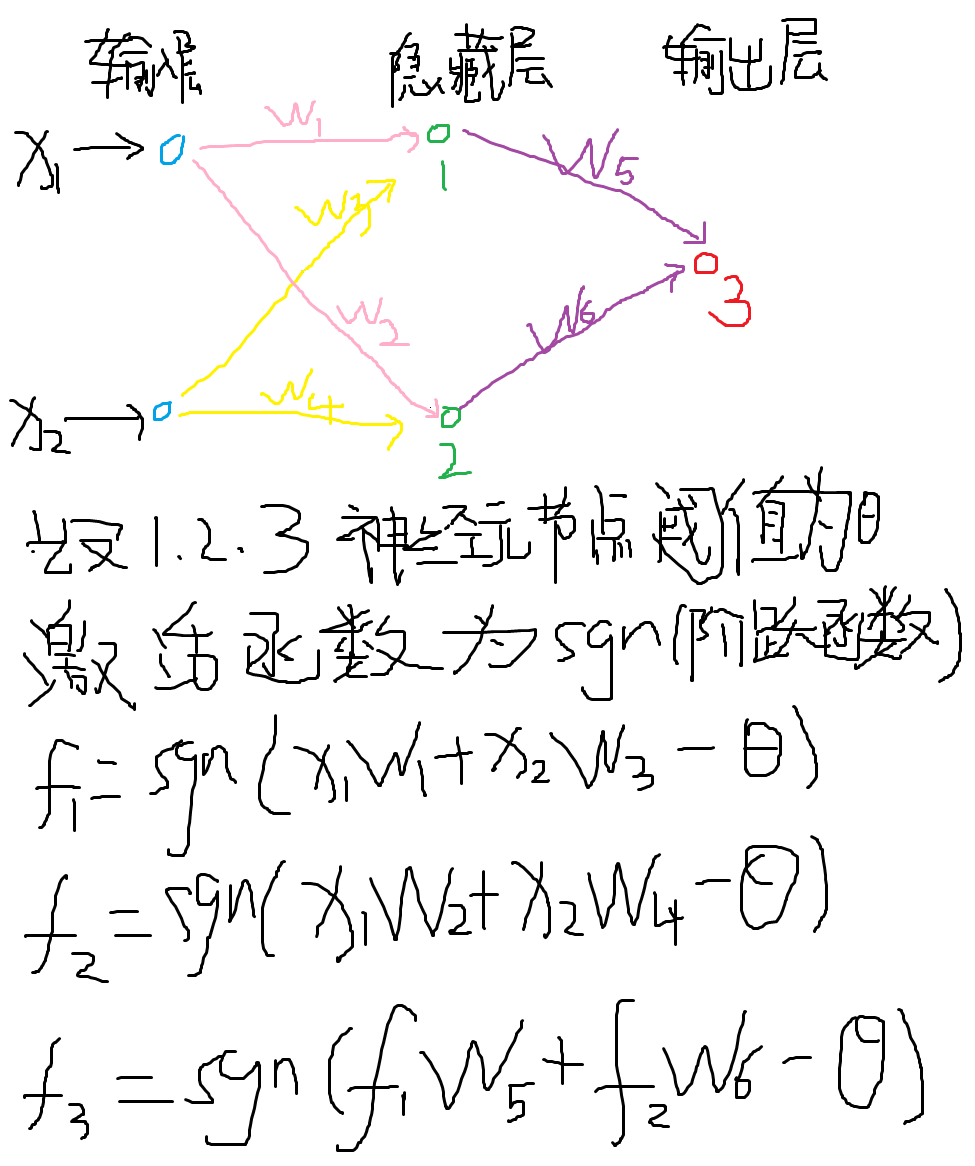 输入层 隐藏层 输出层
X₁ W₁ 1 W₅
W₃
W₂ 3
W₆
X₂ W₄ 2
设1.2.3神经元节点阈值为θ
激活函数为sgn(阶跃函数)
f₁=sgn(x₁W₁+x₂W₃-θ)
f₂=sgn(x₁W₂+x₂W₄-θ)
f₃=sgn(f₁W₅+f₂W₆-θ)